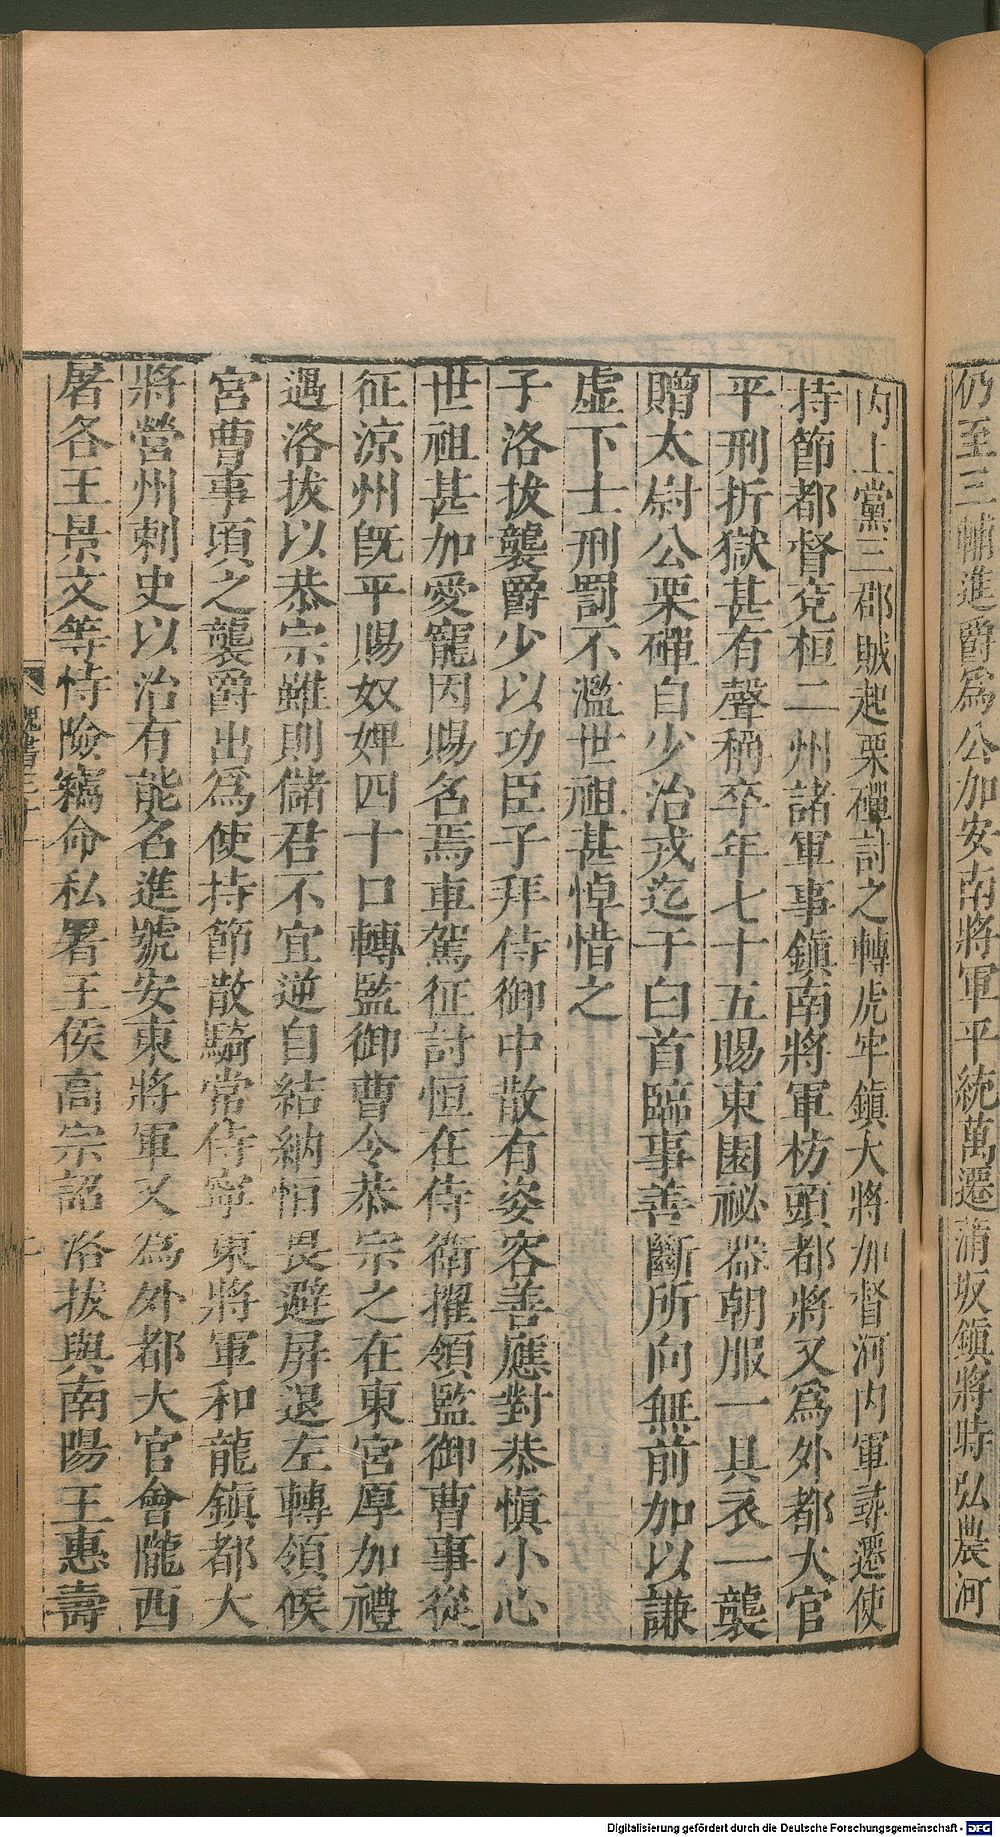 仍至三輔進爵爲公加安南將軍平統萬遷蒲坂鎮將時弘農河
內上黨三郡賊起栗磾討之轉虎牢鎮大將加督河內軍尋遷使
持節都督兗桓二州諸軍事鎮南將軍枋頭都將又爲外都大官
平刑折獄甚有聲稱卒年七十五賜東園祕器朝服一具衣一襲
贈太尉公栗磾自少治戎迄于白首臨事善斷所向無前加以謙
虛下士刑罰不濫世祖甚悼惜之
子洛拔襲爵少以功臣子拜侍御中散有姿容善應對恭慎小心
世祖甚加愛寵因賜名焉車駕征討恒在侍衛擢領監御曹事從
征涼州既平賜奴婢四十口轉監御曹令恭宗之在東宮厚加禮
遇洛拔以恭宗雖則儲君不宜逆自結納恒畏避屏退左轉領候
宮曹事頃之襲爵出爲使持節散騎常侍寧東將軍和龍鎮都大
將營州刺史以治有能名進號安東將軍又爲外都大官會隴西
屠各王景文等恃險竊命私署王侯高宗詔洛拔與南陽王惠壽
魏書三十一
Digitalisierung gefördert durch die Deutsche Forschungsgemeinschaft - DFG